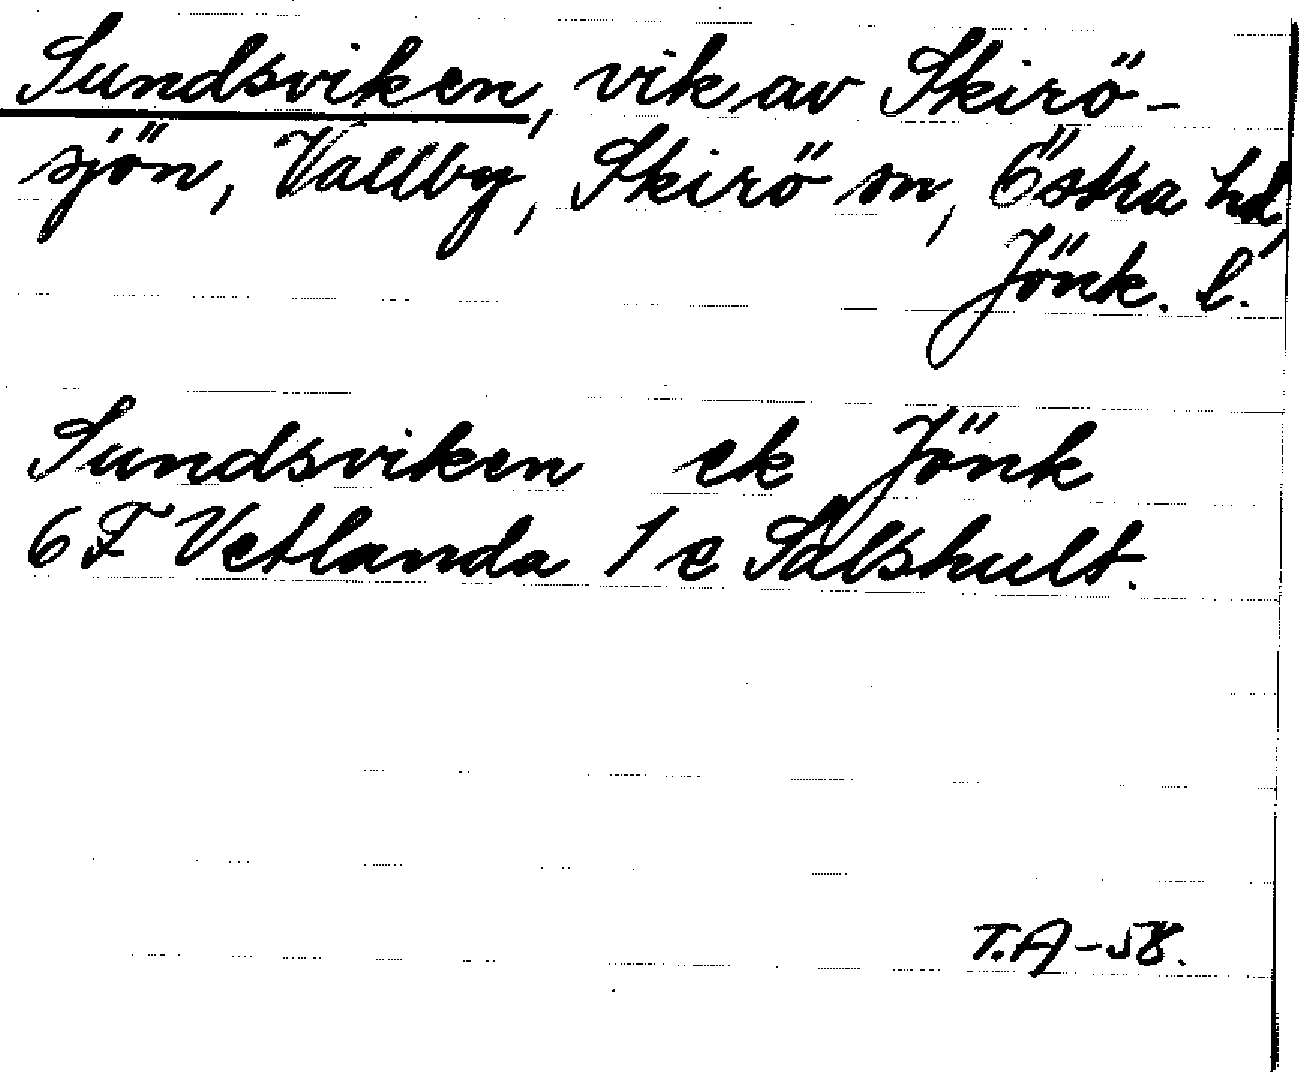 Sundsviken, vik av Skirö-
sjön, Vallby, Skirö sn, Östra hd,
Jönk. l.
Sundsviken ek Jönk
6 F Vetlanda 1 e Sälshult.
T.A-58.